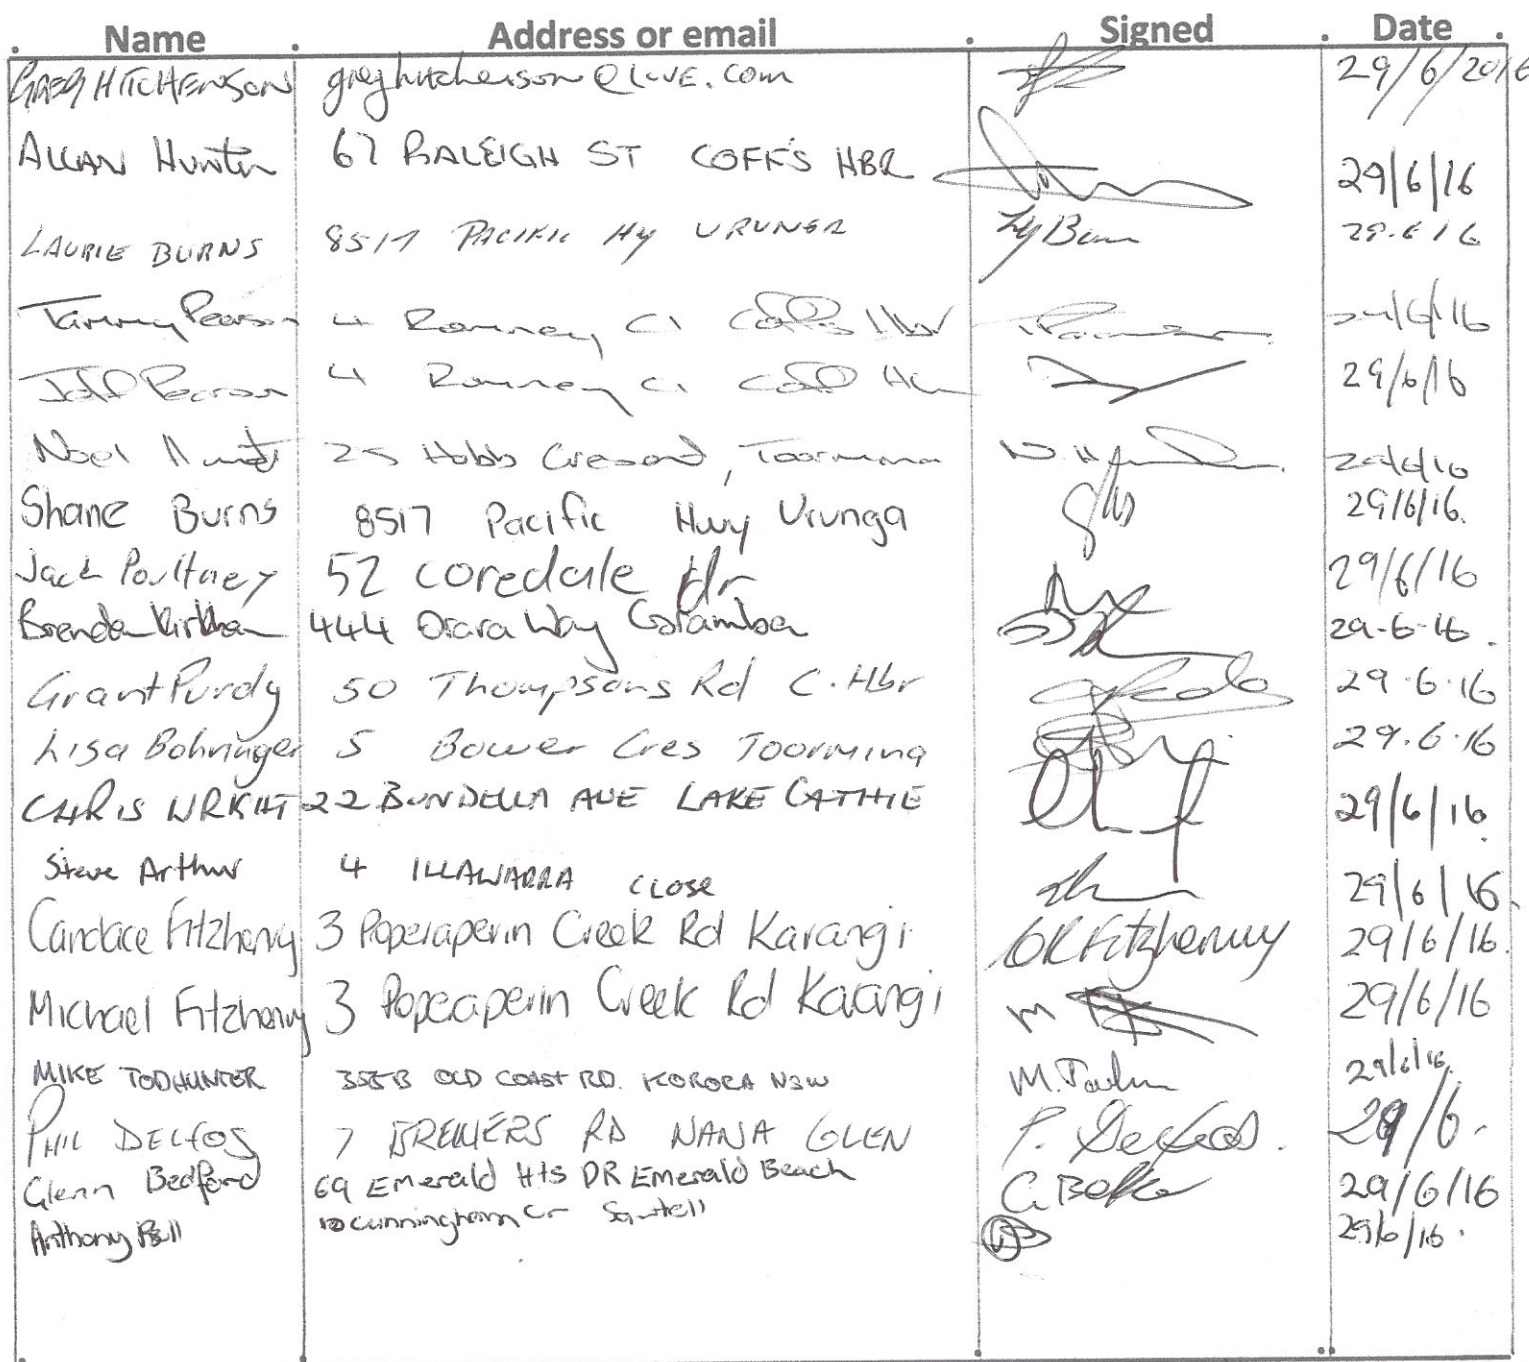 Name Address or email Signed Date
GREG HITCHENSON greghitchenson@LIVE.com 29/6/2016
ALLAN Hunter 67 RALEIGH ST COFFS HBR 29/6/16
LAURIE BURNS 8517 PACIFIC Hy URUNGA 29.6 16
Tammy Pearson 4 Romney Cl Coffs Hbr /6/16
Jeff Pearson 4 Romney Cl Coff 29/6/16
Noel 25 Hobbs Cresent, Toormina N. 29/6/16
Shane Burns 8517 Pacific Hwy Urunga 29/6/16.
Jack Poultney 52 coredale dr 29/6/16
Brendan Kirkham 444 Orara Way Coramba 29-6-16.
Grant Purdy 50 Thompsons Rd C.Hbr 29.6.16
Lisa Bohringer 5 Bower Cres Toormina 29.6.16
CHRIS WRIGHT 22 BUNDELLA AVE LAKE CATHIE 29/6/16
Steve Arthur 4 ILLAWARRA CLOSE 29/6/16
Candace Fitzhenry 3 Poperaperin Creek Rd Karangi CR Fitzhenry 29/6/16.
Michael Fitzhenry 3 Poperaperin Creek Rd Karangi M 29/6/16
MIKE TODHUNTER OLD COAST RD. KORORA NSW M. 29/6/16.
PHIL DELFOS 7 BREWERS RD NANA GLEN P. Delfos. 29/6.
Glenn Bedford 69 Emerald Hts DR Emerald Beach G. 29/6/16
Anthony Bell 10 cunningham cr Sawtell 29/6/16.